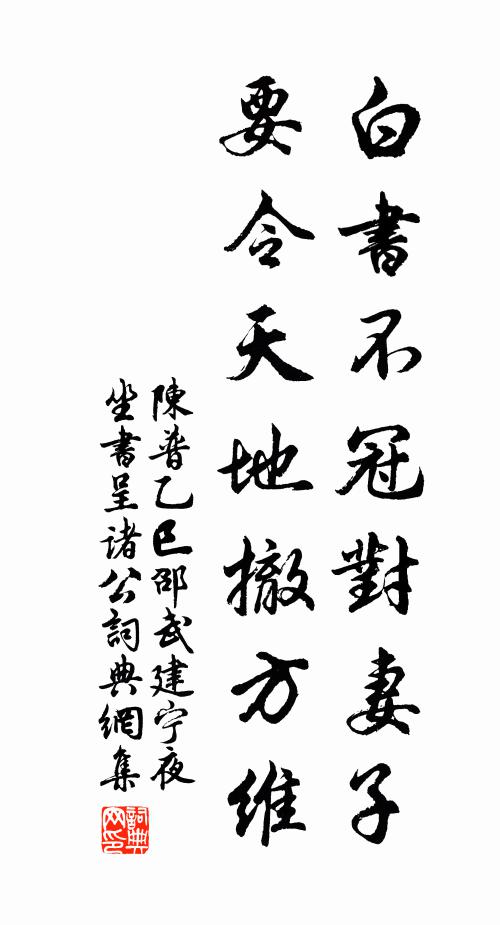 白書不冠對妻子
要令天地撤方維
陳普乙巳邵武建宁夜
坐書呈诸公詞典網集
詞典
网印